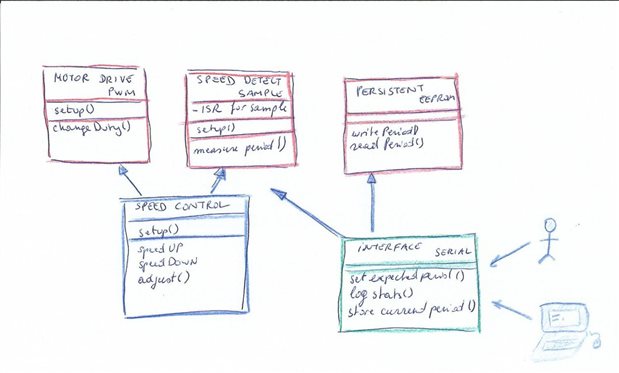 MOTOR DRIVE
PWM
setup()
changeDuty()
SPEED DETECT
SAMPLE
- ISR for sample
setup()
measure period()
PERSISTENT
EEPROM
writePeriod()
readPeriod()
SPEED CONTROL
setup()
speedUP
speedDOWN
adjust()
INTERFACE SERIAL
set expected period()
log stats()
store current period()